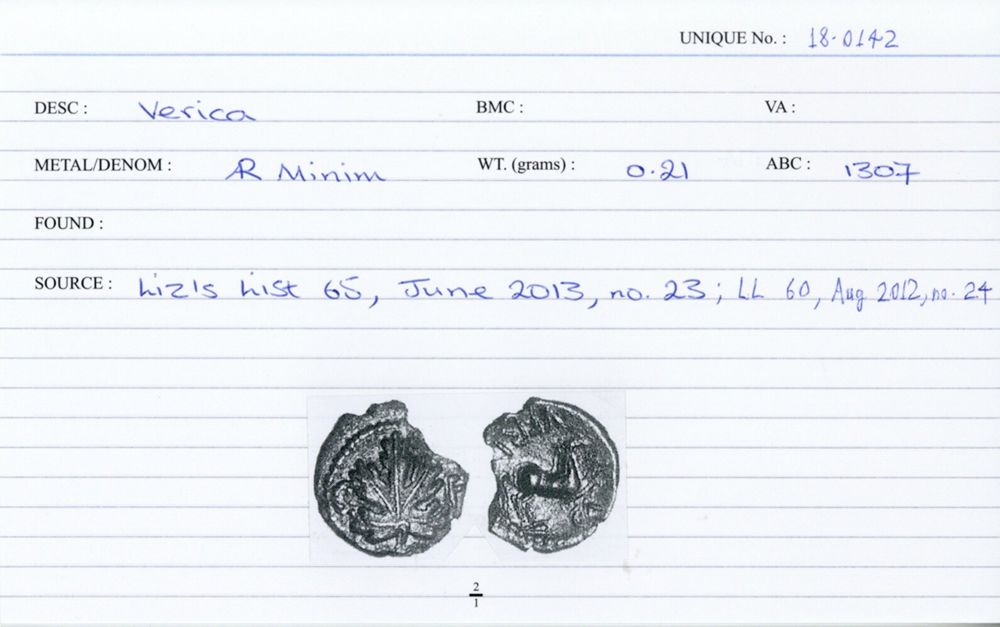 UNIQUE No. : 18-0142
DESC : Verica BMC : VA :
METAL/DENOM : AR Minim WT. (grams) : 0.21 ABC : 1307
FOUND :
SOURCE : Liz's List 65, June 2013, no. 23; LL 60, Aug 2012, no. 24
2
1